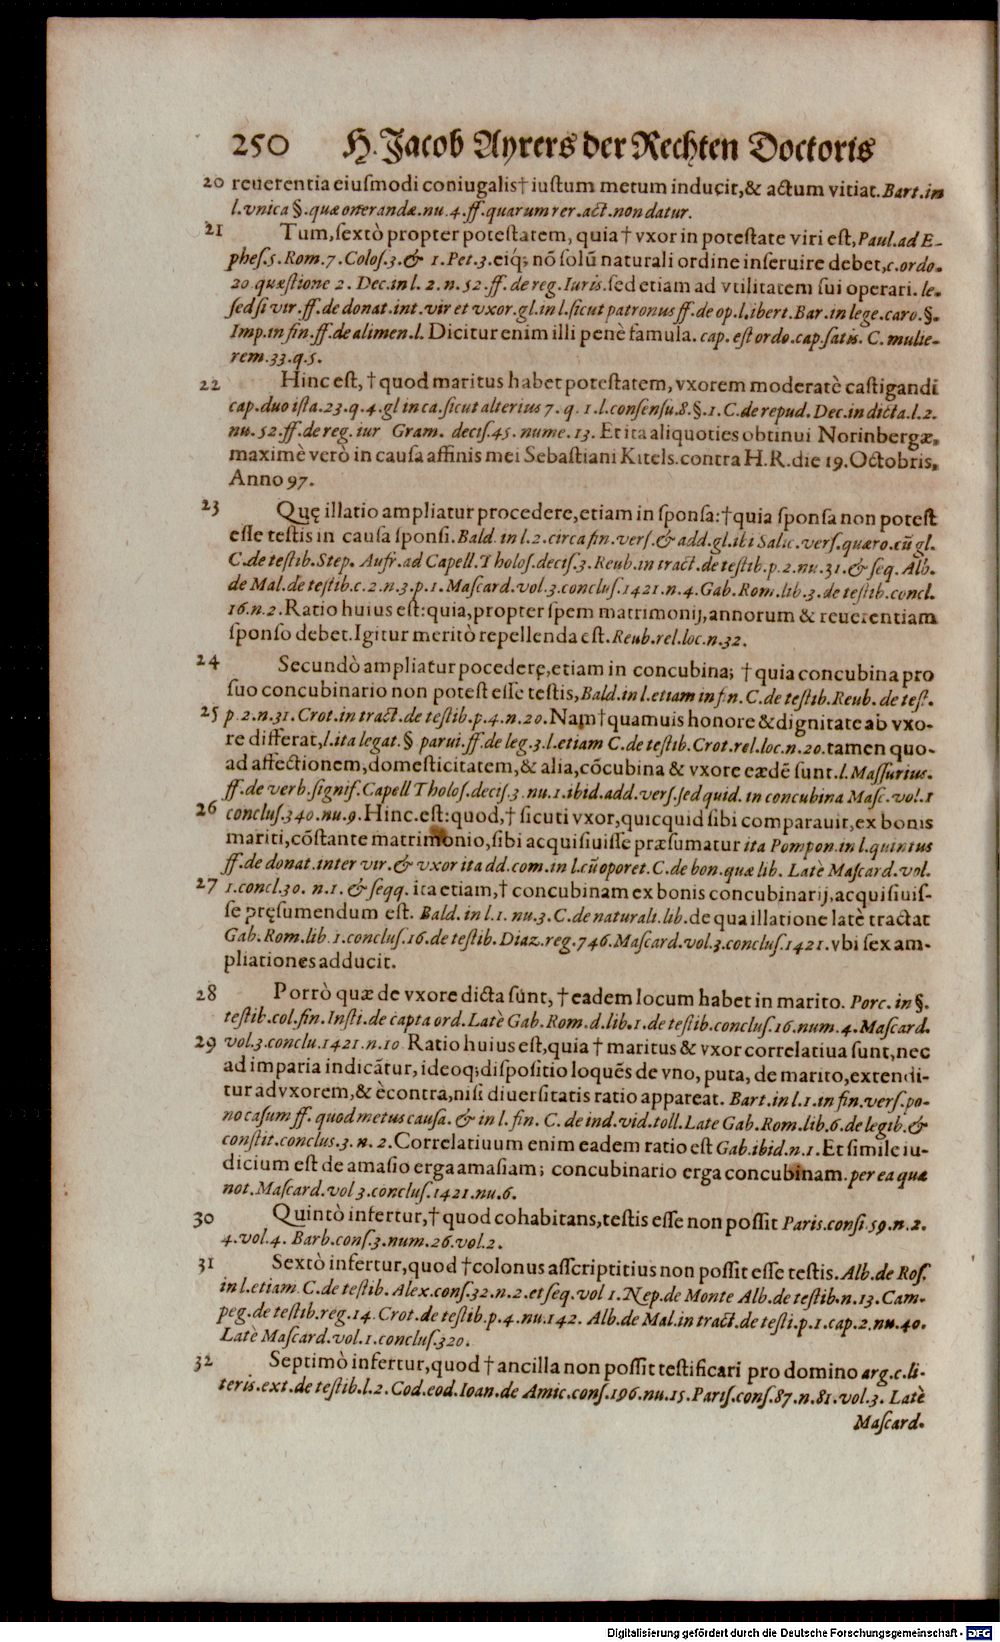 250 H. Jacob Ayrers der Rechten Doctoris
20 reuerentia eiusmodi coniugalis† iustum metum inducit,& actum vitiat. Bart. in
l. vnica §. quæ onerandæ. nu. 4. ff. quarum rer. act. non datur.
21 Tum, sextò propter potestatem, quia † vxor in potestate viri est, Paul. ad E-
phes. 5. Rom. 7. Colos. 3. & 1. Pet. 3. eiq; nō solū naturali ordine inseruire debet, c. ordo.
20 quæstione 2. Dec. in l. 2. n. 52. ff. de reg. Iuris. sed etiam ad vtilitatem sui operari. le.
sed si vir. ff. de donat. int. vir et vxor. gl. in l. sicut patronus ff. de op. l. ibert. Bar. in lege. caro. §.
Imp. in fin. ff. de alimen. l. Dicitur enim illi penè famula. cap. est ordo. cap. satis. C. mulie-
rem. 33. q. 5.
22 Hinc est, † quod maritus habet potestatem, vxorem moderatè castigandi
cap. duo ista. 23. q. 4. gl in ca. sicut alterius 7. q. 1. l. consensu. 8. §. 1. C. de repud. Dec. in dicta. l. 2.
nu. 52. ff. de reg. iur Gram. decis. 45. nume. 13. Et ita aliquoties obtinui Norinbergæ,
maximè verò in causa affinis mei Sebastiani Kitels. contra H. R. die 19. Octobris,
Anno 97.
23 Quę illatio ampliatur procedere, etiam in sponsa: † quia sponsa non potest
esse testis in causa sponsi. Bald. in l. 2. circa fin. vers. & add. gl. ibi Salic. vers. quæro. cū gl.
C. de testib. Step. Aufr. ad Capell. Tholos. decis. 3. Reub. in tract. de testib. p. 2. nu. 31. & seq. Alb.
de Mal. de testib. c. 2. n. 3. p. 1. Mascard. vol. 3. conclus. 1421. n. 4. Gab. Rom. lib. 3. de testib. concl.
16. n. 2. Ratio huius est: quia, propter spem matrimonij, annorum & reuerentiam
sponso debet. Igitur meritò repellenda est. Reub. rel. loc. n. 32.
24 Secundò ampliatur pocederę, etiam in concubina; † quia concubina pro
suo concubinario non potest esse testis, Bald. in l. etiam in fin. C. de testib. Reub. de test.
25 p. 2. n. 31. Crot. in tract. de testib. p. 4. n. 20. Nam † quamuis honore & dignitate ab vxo-
re differat, l. ita legat. § parui. ff. de leg. 3. l. etiam C. de testib. Crot. rel. loc. n. 20. tamen quo-
ad affectionem, domesticitatem, & alia, cōcubina & vxore eædē sunt. l. Massurius.
ff. de verb. signif. Capell Tholos. decis. 3. nu. 1. ibid. add. vers. sed quid. in concubina Masc. vol. 1
26 conclus. 340. nu. 9. Hinc. est: quod, † sicuti vxor, quicquid sibi comparauit, ex bonis
mariti, cōstante matrimonio, sibi acquisiuisse præsumatur ita Pompon. in l. quintus
ff. de donat. inter vir. & vxor ita dd. com. in l. cū oporet. C. de bon. quæ lib. Latè Mascard. vol.
27 1. concl. 30. n. 1. & seqq. ita etiam, † concubinam ex bonis concubinarij, acquisiuis-
se pręsumendum est. Bald. in l. 1. nu. 3. C. de naturali. lib. de qua illatione latè tractat
Gab. Rom. lib. 1. conclus. 16. de testib. Diaz. reg. 746. Mascard. vol. 3. conclus. 1421. vbi sex am-
pliationes adducit.
28 Porrò quæ de vxore dicta sunt, † eadem locum habet in marito. Porc. in §.
testib. col. fin. Insti. de capta ord. Latè Gab. Rom. d. lib. 1. de testib. conclus. 16. num. 4. Mascard.
29 vol. 3. conclu. 1421. n. 10 Ratio huius est, quia † maritus & vxor correlatiua sunt, nec
ad imparia indicātur, ideoq; dispositio loquēs de vno, puta, de marito, extendi-
tur ad vxorem, & ècontra, nisi diuersitatis ratio appareat. Bart. in l. 1. in fin. vers. po-
no casum ff. quod metus causa. & in l. fin. C. de ind. vid. toll. Late Gab. Rom. lib. 6. de legib. &
constit. conclus. 3. n. 2. Correlatiuum enim eadem ratio est Gab. ibid. n. 1. Et simile iu-
dicium est de amasio erga amasiam; concubinario erga concubinam. per ea quæ
not. Mascard. vol 3. conclus. 1421. nu. 6.
30 Quintò infertur, † quod cohabitans, testis esse non possit Paris. consi. 59. n. 2.
4. vol. 4. Barb. cons. 3. num. 26. vol. 2.
31 Sextò infertur, quod † colonus asscriptitius non possit esse testis. Alb. de Ros.
in l. etiam. C. de testib. Alex. cons. 32. n. 2. et seq. vol 1. Nep. de Monte Alb. de testib. n. 13. Cam-
peg. de testib. reg. 14. Crot. de testib. p. 4. nu. 142. Alb. de Mal. in tract. de testi. p. 1. cap. 2. nu. 40.
Latè Mascard. vol. 1. conclus. 320.
32 Septimò infertur, quod † ancilla non possit testificari pro domino arg. c. li-
teris. ext. de testib. l. 2. Cod. eod. Ioan. de Amic. cons. 196. nu. 15. Paris. cons. 87. n. 81. vol. 3. Latè
Mascard.
Digitalisierung gefördert durch die Deutsche Forschungsgemeinschaft - DFG